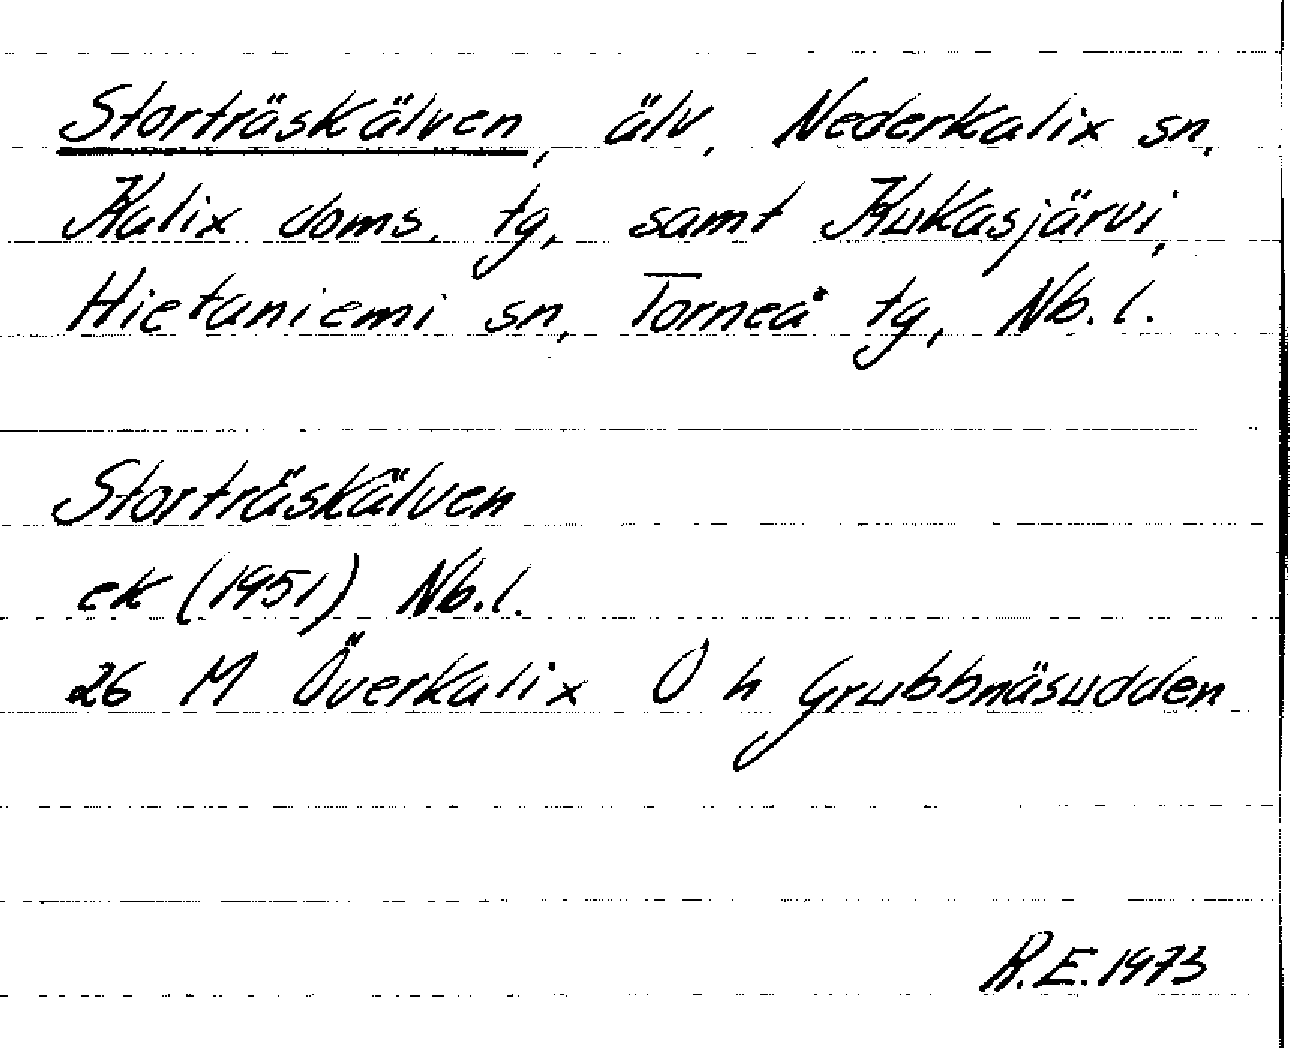 Storträskälven, älv, Nederkalix sn,
Kalix doms. tg, samt Kukasjärvi,
Hietaniemi sn, Torneå tg, Nb.l.
Storträskälven
ek (1951) Nb.l.
26 M Överkalix O h Grubbnäsudden
R.E.1973